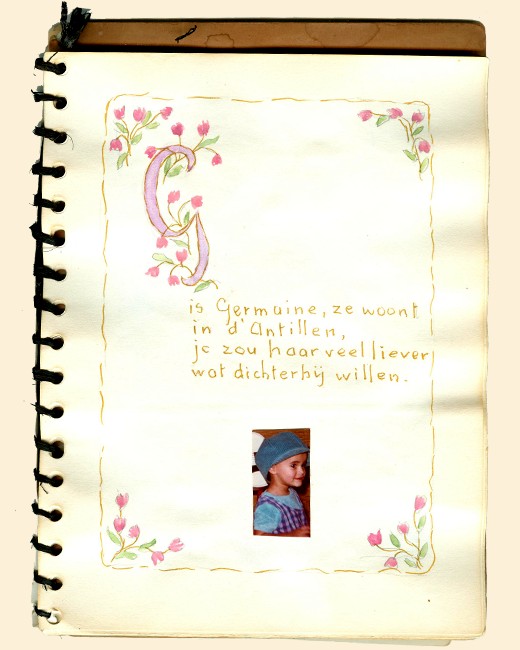 G
is Germaine, ze woont
in d'Antillen,
je zou haar veel liever
wat dichterbij willen.